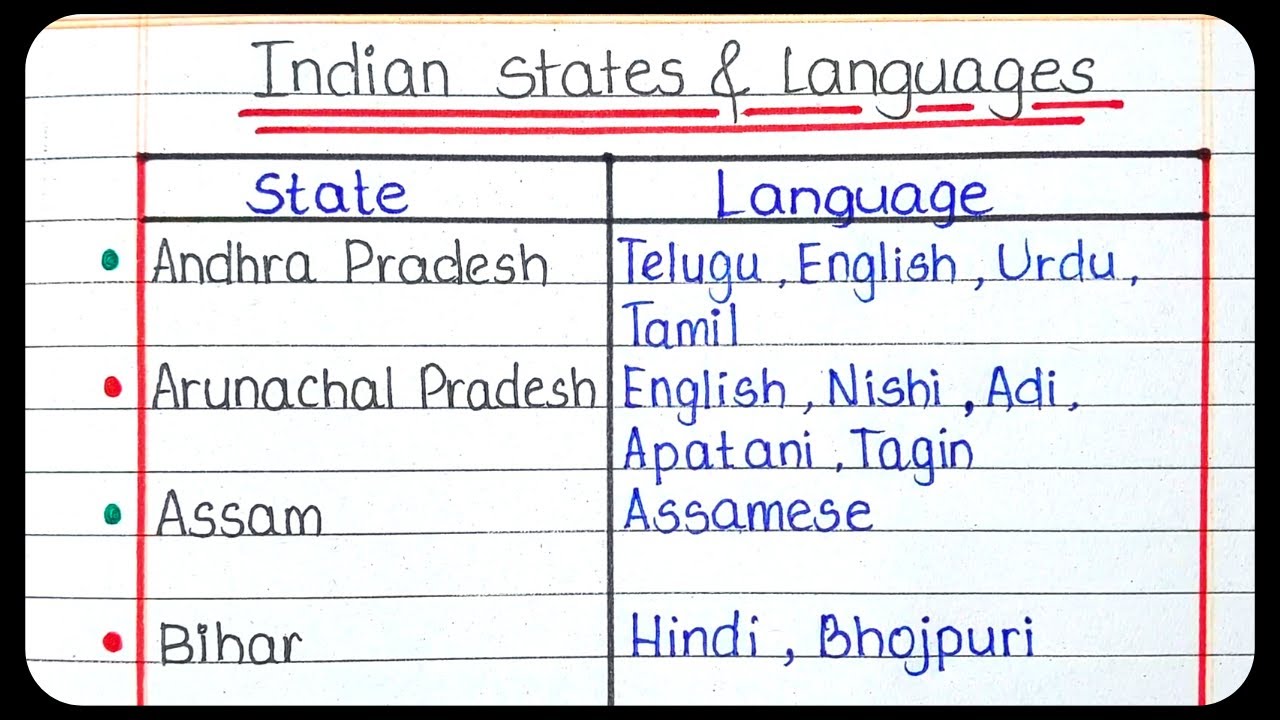 Indian States & Languages
State Language
Andhra Pradesh Telugu, English, Urdu,
Tamil
Arunachal Pradesh English, Nishi, Adi,
Apatani, Tagin
Assam Assamese
Bihar Hindi, Bhojpuri